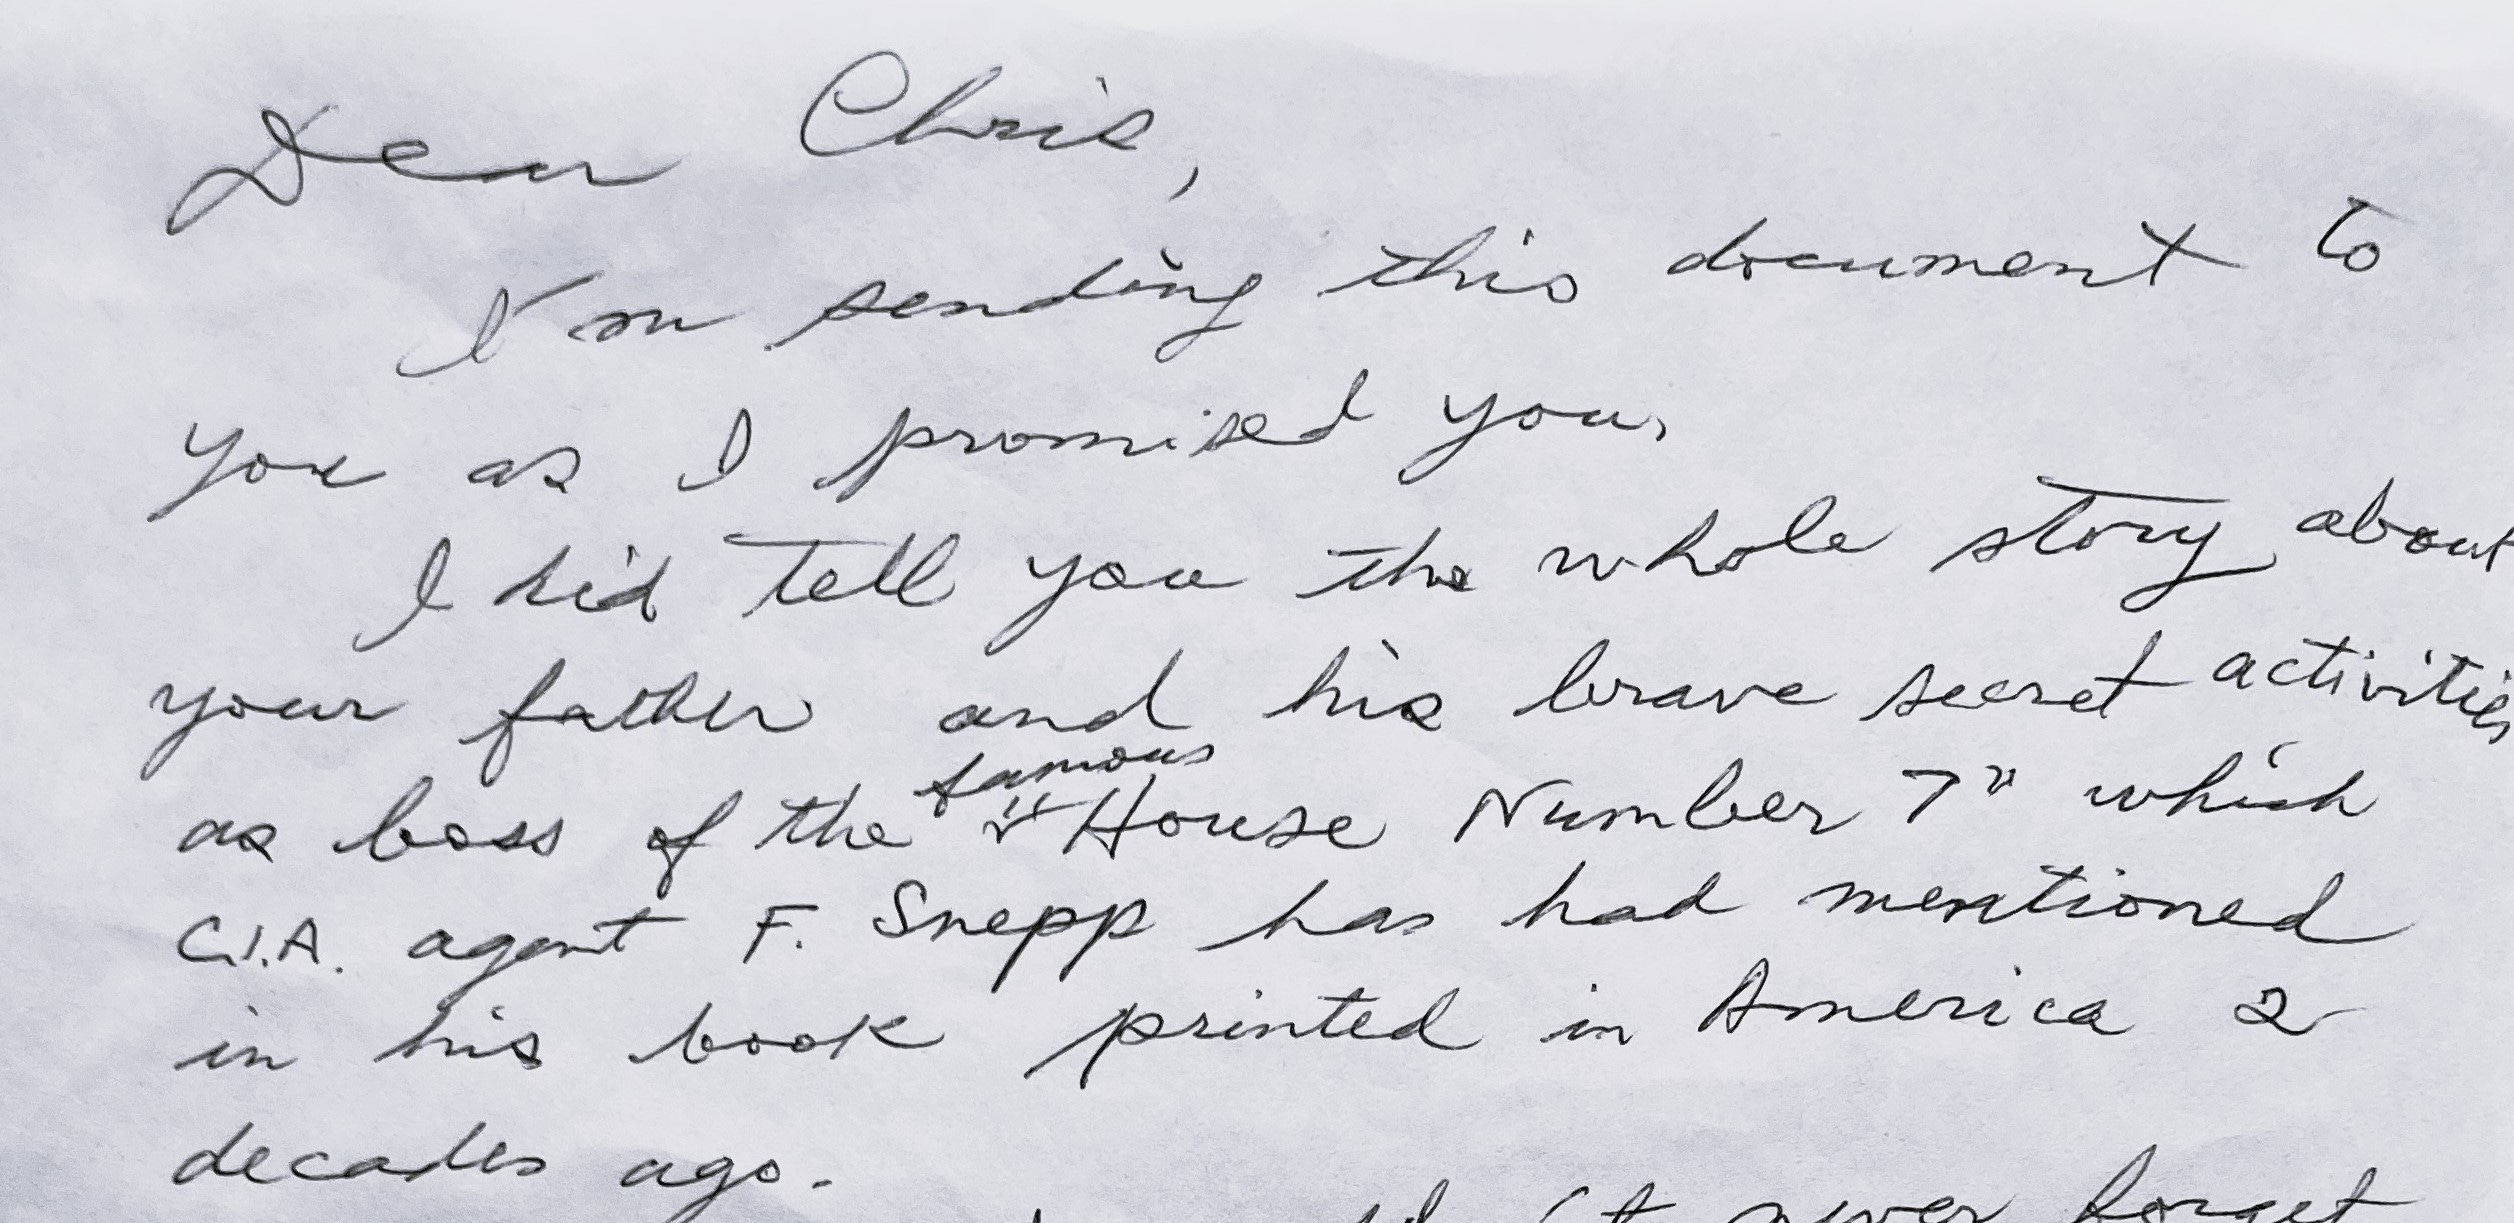 Dear Chris,
I'm sending this document to
you as I promised you.
I did tell you the whole story about
your father and his brave secret activities
as boss of the famous "House Number 7" which
C.I.A. agent F. Snepp has had mentioned
in his book printed in America 2
decades ago.
never forget